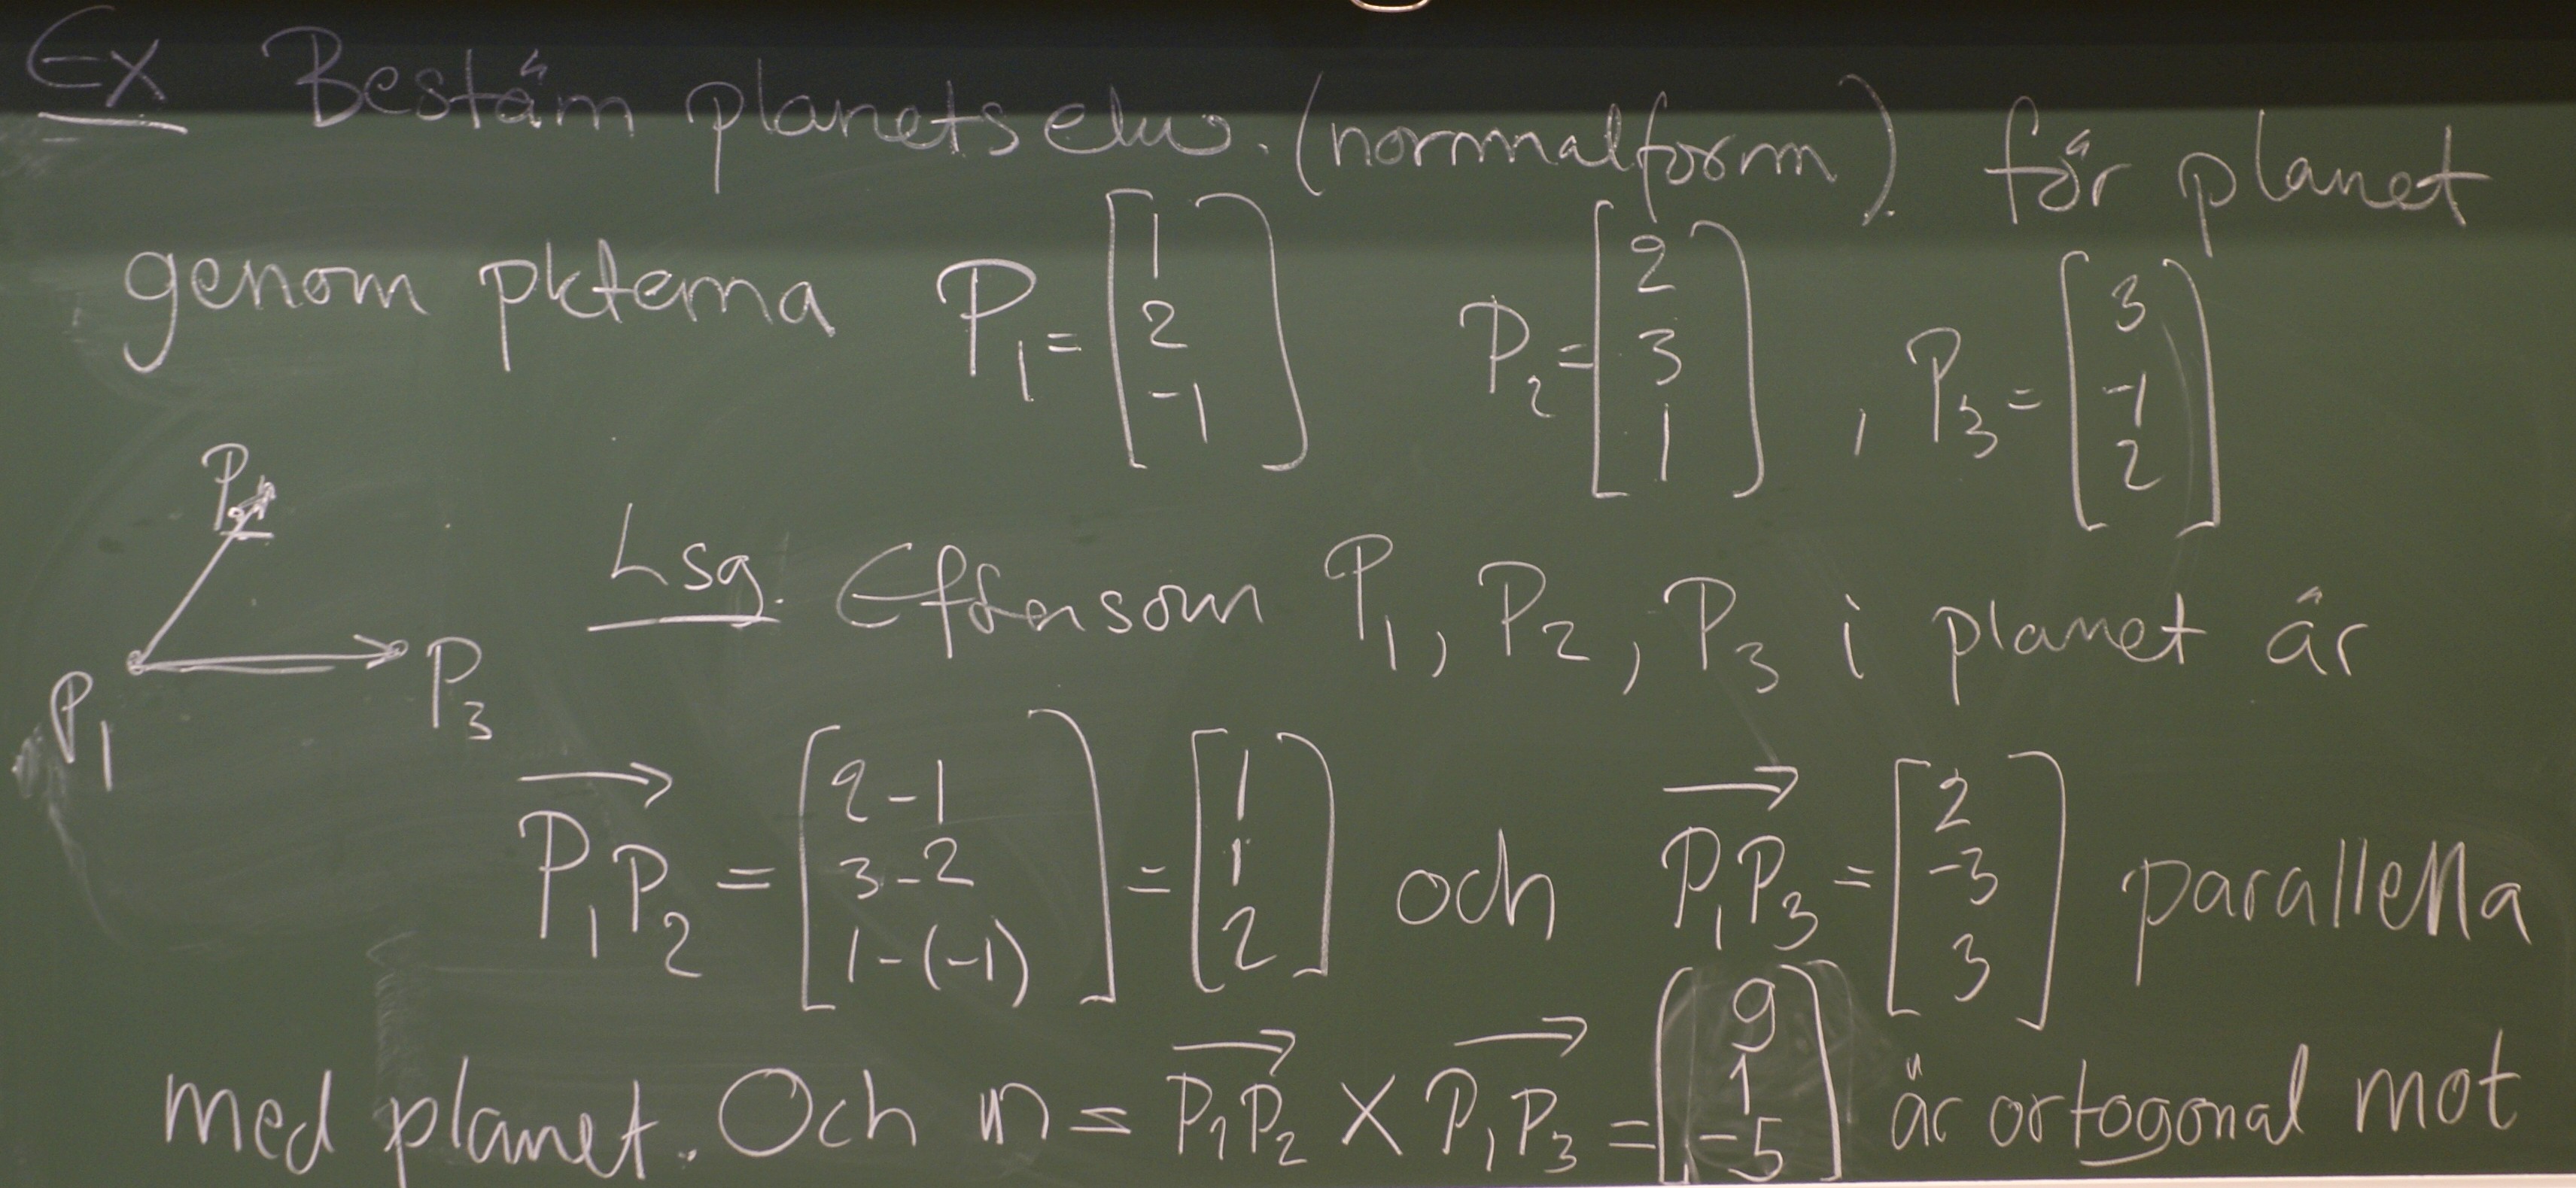 Ex Bestäm planets ekv. (normalform). för planet
genom pkterna P₁ = [1 2 -1] P₂ = [2 3 1] , P₃ = [3 -1 2]
P₂
P₁
P₃
Lsg. Eftersom P₁, P₂, P₃ i planet är
P₁P₂ = [2-1 3-2 1-(-1)] = [1 1 2] och P₁P₃ = [2 -3 3] parallella
med planet. Och n = P₁P₂ × P₁P₃ = [9 1 -5] är ortogonal mot